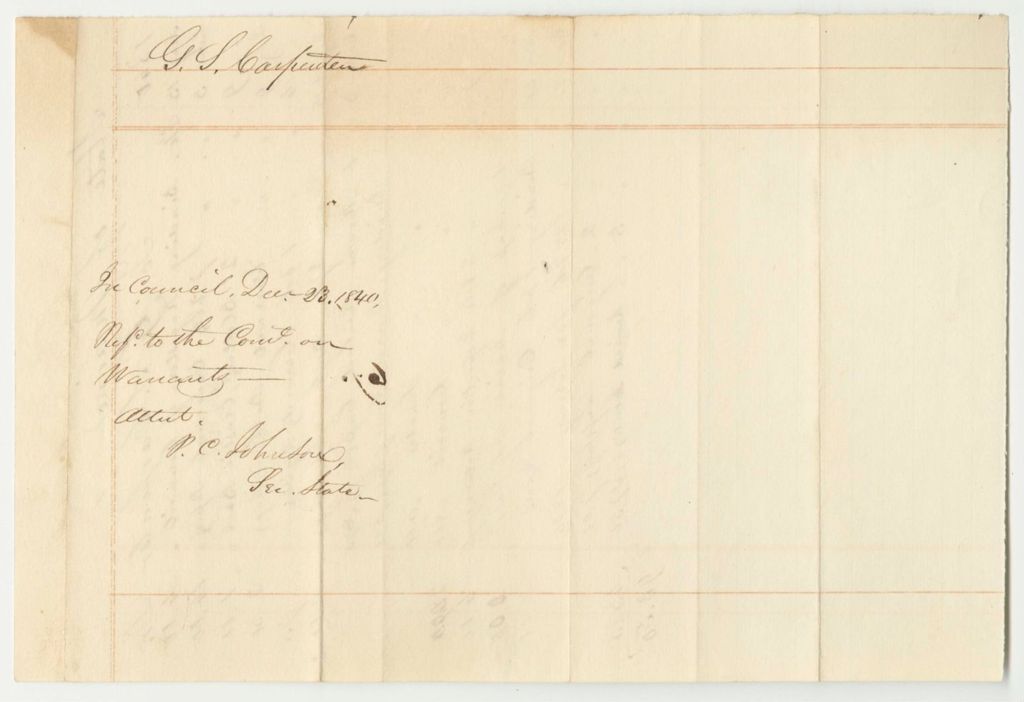 G. S. Carpenter
In Council, Dec. 23. 1840.
Ref. to the Com. on
Warrants —
Attest.
P. C. Johnson,
Sec. State —